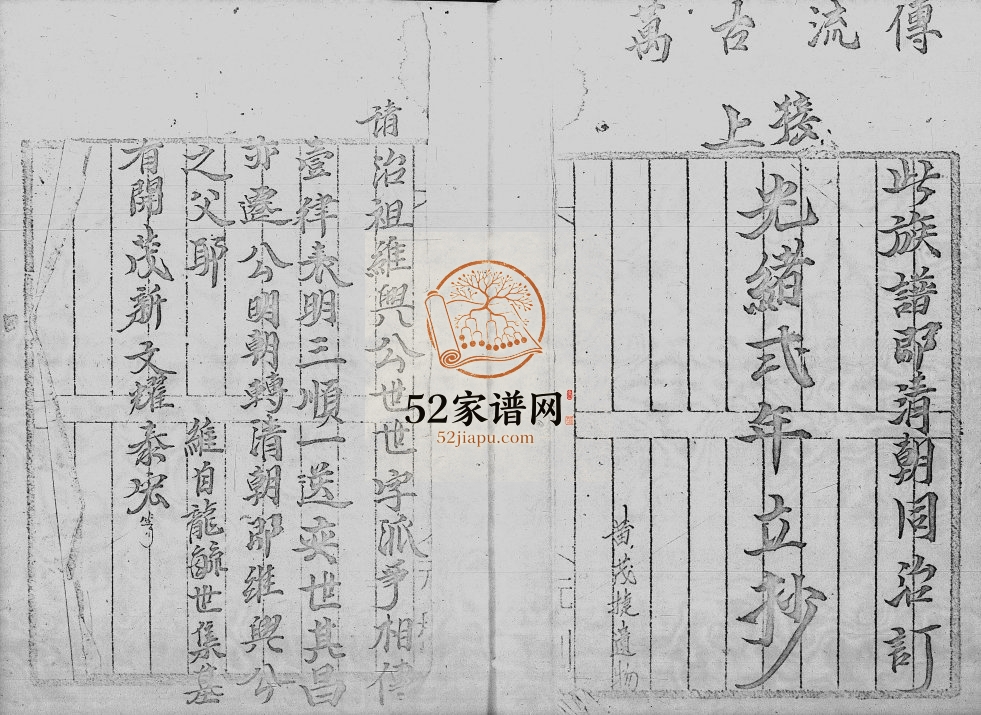 傳流古萬
接上
此族譜即清朝同治訂
光緒弍年立抄
黄茂捷遺物
诸治祖維興公世世字派爭相傳
壹律表明三順一送奕世其昌
亦遷公明朝轉清朝即維興公
之父耶
維自龍毓世集基
有開茂新文耀泰宏
52家谱网
52jiapu.com